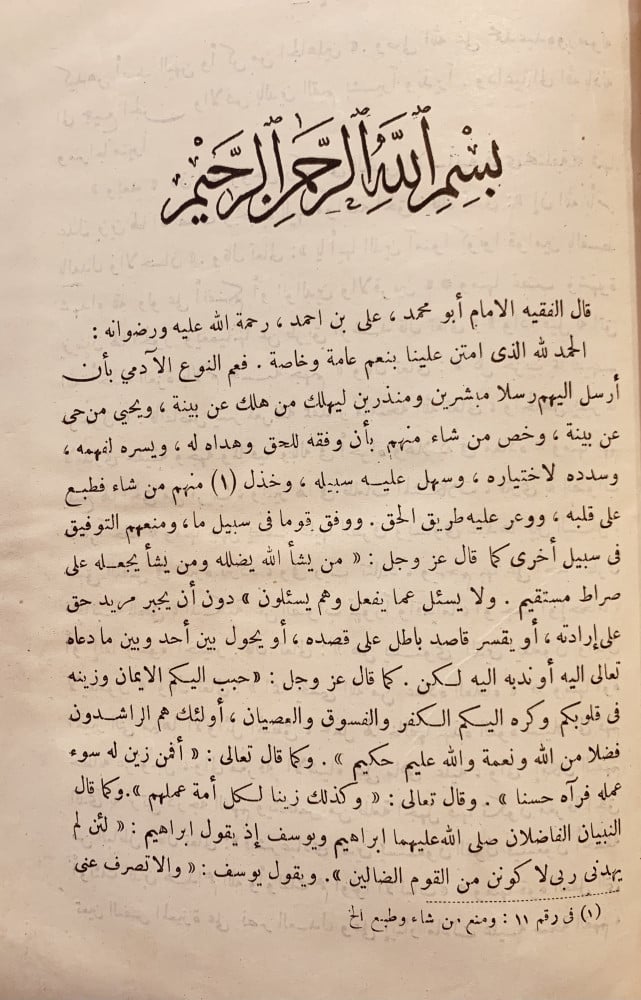 بِسْمِ اللَّهِ الرَّحْمٰنِ الرَّحِيْمِ
قال الفقيه الامام أبو محمد ، على بن احمد ، رحمة الله عليه ورضوانه :
الحمد لله الذى امتن علينا بنعم عامة وخاصة . فعم النوع الآدمي بأن
أرسل اليهم رسلا مبشرين ومنذرين ليهلك من هلك عن بينة ، ويحيي من حى
عن بينة ، وخص من شاء منهم بأن وفقه للحق وهداه له ، ويسره لفهمه ،
وسدده لاختياره ، وسهل عليه سبيله ، وخذل (١) منهم من شاء فطبع
على قلبه ، ووعر عليه طريق الحق . ووفق قوما فى سبيل ما ، ومنعهم التوفيق
فى سبيل أخرى كما قال عز وجل : « من يشأ الله يضلله ومن يشأ يجعله على
صراط مستقيم . ولا يسئل عما يفعل وهم يسئلون » دون أن يجبر مريد حق
على إرادته ، أو يقسر قاصد باطل على قصده ، أو يحول بين أحد وبين ما دعاه
تعالى اليه أو ندبه اليه لكن . كما قال عز وجل : «حبب اليكم الايمان وزينه
فى قلوبكم وكره اليكم الكفر والفسوق والعصيان ، أولئك هم الراشدون
فضلا من الله ونعمة والله عليم حكيم » . وكما قال تعالى : « أفمن زين له سوء
عمله فرآه حسنا » . وقال تعالى : « وكذلك زينا لكل أمة عملهم » . وكما قال
النبيان الفاضلان صلى الله عليهما ابراهيم ويوسف إذ يقول ابراهيم : « لئن لم
يهدنى ربى لا كونن من القوم الضالين » . ويقول يوسف : « والاتصرف عنى
(١) فى رقم ١١ : ومنع من شاء وطبع الخ